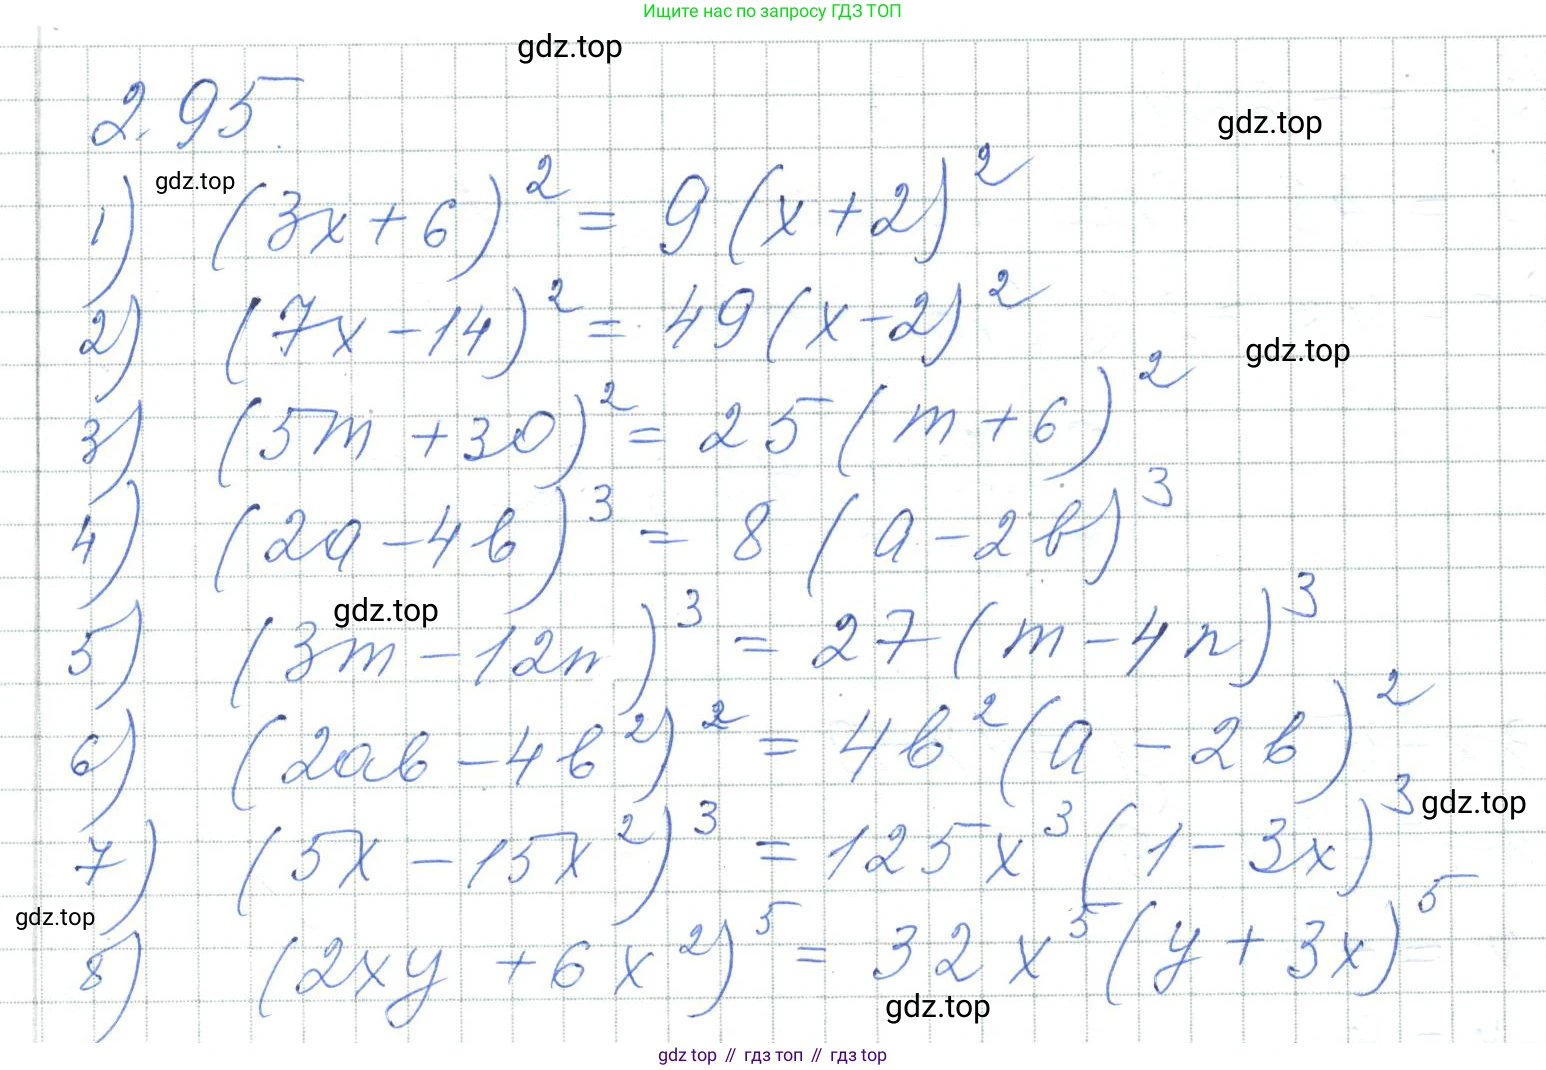 Ищите нас по запросу ГДЗ ТОП
gdz.top
2.95
gdz.top
gdz.top
1) (3x+6)² = 9(x+2)²
2) (7x-14)² = 49(x-2)²
gdz.top
3) (5m+30)² = 25(m+6)²
4) (2a-4b)³ = 8(a-2b)³
gdz.top
5) (3m-12n)³ = 27(m-4n)³
6) (2ab-4b²)² = 4b²(a-2b)²
7) (5x-15x²)³ = 125x³(1-3x)³
gdz.top
gdz.top
8) (2xy+6x²)⁵ = 32x⁵(y+3x)⁵
gdz.top
gdz top // гдз топ // гдз top